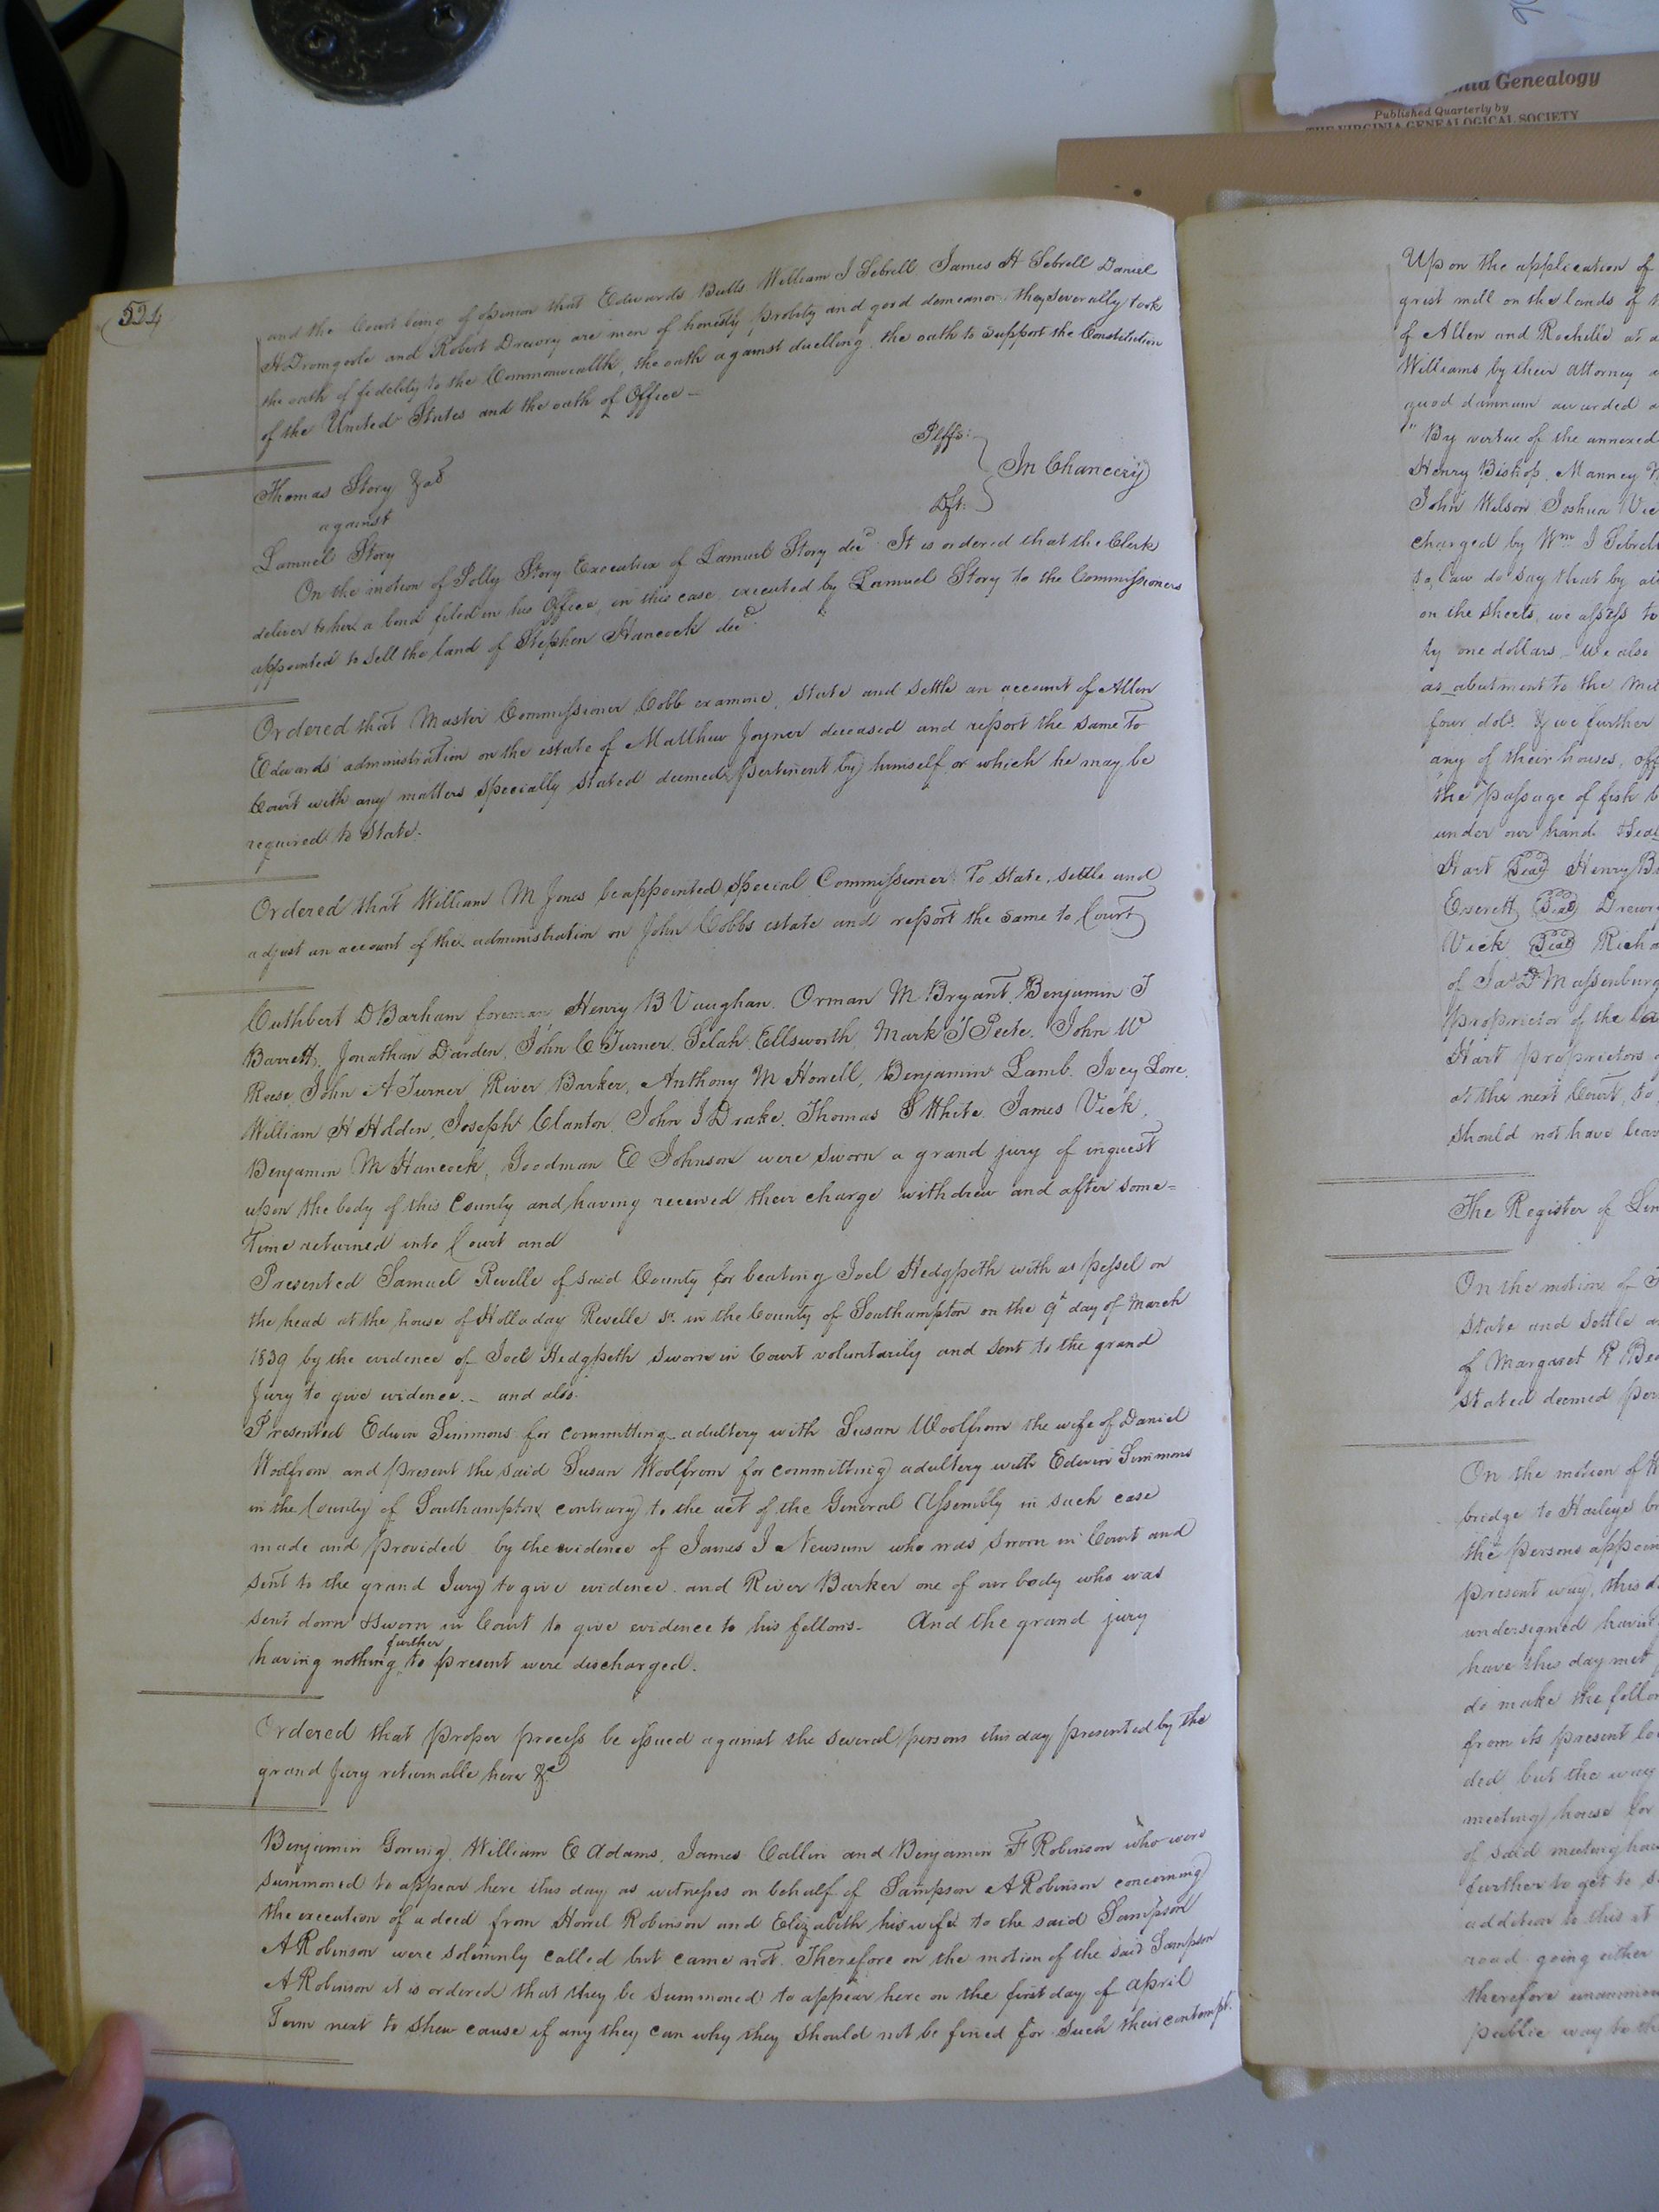 nia Genealogy
Published Quarterly by
THE VIRGINIA GENEALOGICAL SOCIETY
524
and the Court being of opinion that Edwards Butts William J Sebrell James H Sebrell Daniel
H Dromgoole and Robert Drewry are men of honesty probity and good demeanor, they severally took
the oath of fidelity to the Commonwealth, the oath against duelling, the oath to support the Constitution
of the United States and the oath of Office —
Thomas Story &als Plffs:
against In Chancery
Lamuel Story Dft:
On the motion of Polly Story Executrix of Lamuel Story decd It is ordered that the Clerk
deliver to her a bond filed in his Office, in this case executed by Lamuel Story to the Commissioners
appointed to sell the land of Stephen Hancock decd.
Ordered that Master Commissioner Cobb examine, state and settle an account of Allen
Edwards' administration on the estate of Matthew Joyner deceased and report the same to
Court with any matters specially stated deemed pertinent by himself or which he may be
required to state.
Ordered that William M Jones be appointed special Commissioner to state, settle and
adjust an account of the administration on John Cobbs estate and report the same to Court
Cuthbert D Barham foreman, Henry B Vaughan, Orman M Bryant, Benjamin J
Barrett, Jonathan Darden, John C Turner, Selah Ellsworth, Mark J Peete, John W
Reese, John A Turner River Barker, Anthony M Howell, Benjamin Lamb, Ivey Lore,
William H Holden, Joseph Clanton, John J Drake, Thomas S White, James Vick,
Benjamin M Hancock, Goodman E Johnson were sworn a grand jury of inquest
upon the body of this County and having received their charge withdrew and after some=
Time returned into Court and
Presented Samuel Revelle of said County for beating Joel Hedgpeth with as pessel on
the head at the house of Holladay Revelle sr. in the County of Southampton on the 9t day of March
1839 by the evidence of Joel Hedgpeth sworn in Court voluntarily and sent to the grand
Jury to give evidence. — and also.
Presented Edwin Simmons for committing adultery with Susan Woolfrom the wife of Daniel
Woolfrom and present the said Susan Woolfrom for committing adultery with Edwin Simmons
in the County of Southampton contrary to the act of the General Assembly in such case
made and provided by the evidence of James J Newsum who was sworn in Court and
sent to the grand Jury to give evidence. and River Barker one of our body who was
sent down & sworn in Court to give evidence to his fellows — And the grand jury
having nothing further to present were discharged.
Ordered that proper process be issued against the several persons this day presented by the
grand Jury returnable here &c
Benjamin Goring, William E Adams, James Callin and Benjamin F Robinson who were
summoned to appear here this day as witnesses on behalf of Sampson A Robinson concerning
the execution of a deed from Howel Robinson and Elizabeth his wife to the said Sampson
A Robinson were solemnly called but came not. Therefore on the motion of the said Sampson
A Robinson it is ordered that they be summoned to appear here on the first day of April
Term next to shew cause if any they can why they should not be fined for such their contempt.
Upon the application of
grist mill on the lands of
of Allen and Rochelle at a
Williams by their attorney
quod damnum awarded
" By virtue of the annexed
Henry Bishop, Manney
John Wilson Joshua Vic
charged by Wm J Sebrell
to, law do say that by
on the sheets, we assess to
ty one dollars — We also
as abutment to the mil
four dols. & we further
any of their houses, off
the passage of fish
under our hand Seal
Hart Seal Henry B
Everett Seal Drewry
Vick Seal Rich
of Jas D Massenburg
proprietor of the la
Hart proprietors
at the next Court, to
should not have leav
The Register of
On the motion of
state and settle
of Margaret R
stated deemed per
On the motion of
bridge to
the persons appoin
present way, this
undersigned having
have this day met
do make the follow
from its present lo
ded but the way
meeting house for
of said meeting hou
further to get to
addition to this it
road going either
therefore unanimou
public way to the